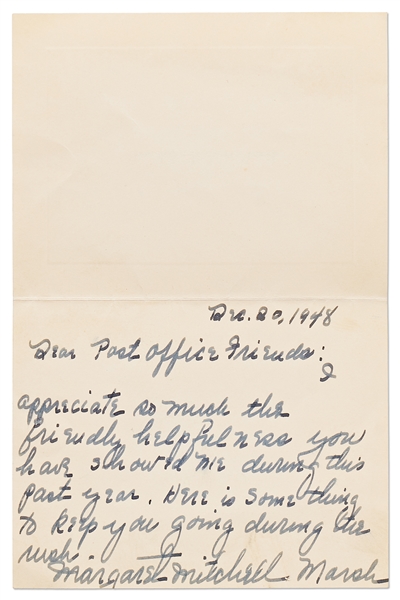 Dec. 20, 1948
Dear Post Office Friends:
I
appreciate so much the
friendly helpfulness you
have showed me during this
past year. Here is something
to keep you going during the
rush.
Margaret Mitchell Marsh